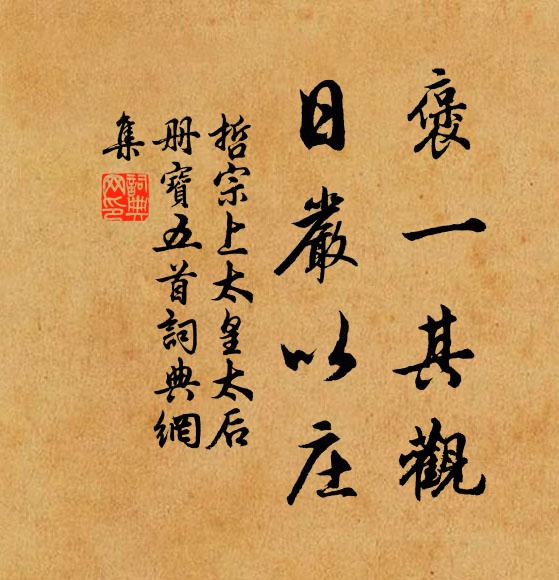 褒一其觀
日嚴以庄
哲宗上太皇太后
册寶五首詞典網
集
詞典
网印